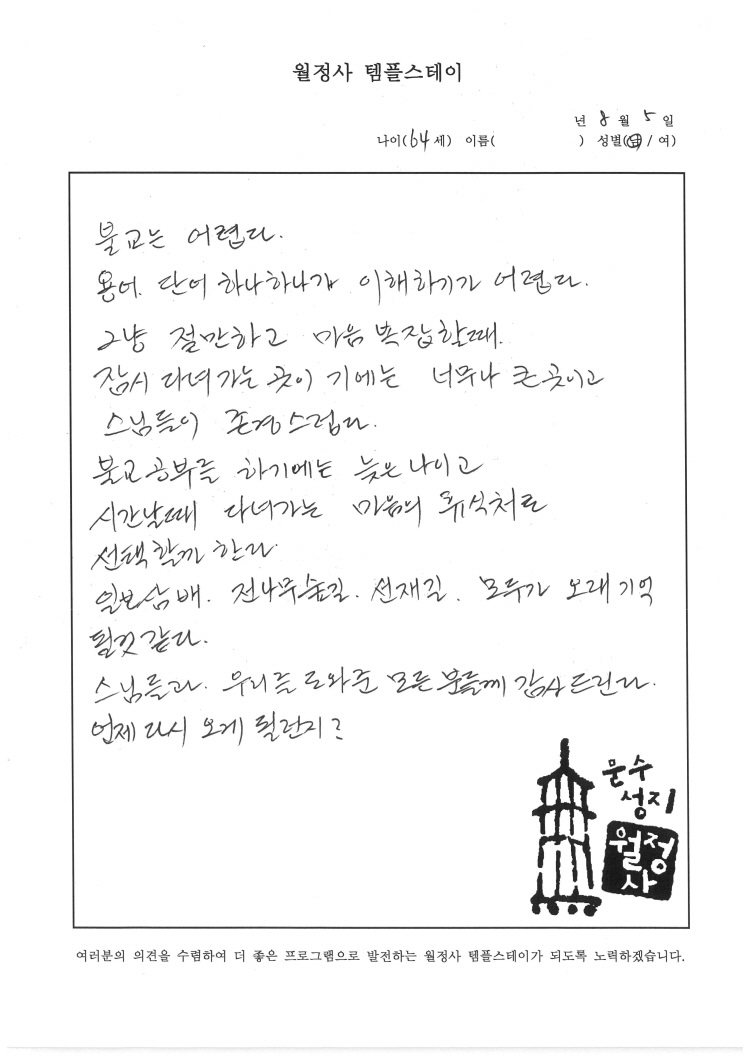 월정사 템플스테이
년 8 월 5 일
나이(64세) 이름( ) 성별(남/여)
불교는 어렵다.
용어. 단어 하나하나가 이해하기가 어렵다.
그냥 절만하고 마음 복잡할때.
잠시 다녀가는 곳이 기에는 너무나 큰 곳이고
스님들이 존경스럽다.
불교공부를 하기에는 늦은 나이고
시간날때 다녀가는 마음의 휴식처로
선택할까 한다
일보삼배. 전나무숲길. 선재길. 모두가 오래 기억
될것 같다.
스님들과. 우리를 도와준 모든 분들께 감사드린다.
언제 다시 오게 될런지?
문수
성지
월정
사
여러분의 의견을 수렴하여 더 좋은 프로그램으로 발전하는 월정사 템플스테이가 되도록 노력하겠습니다.